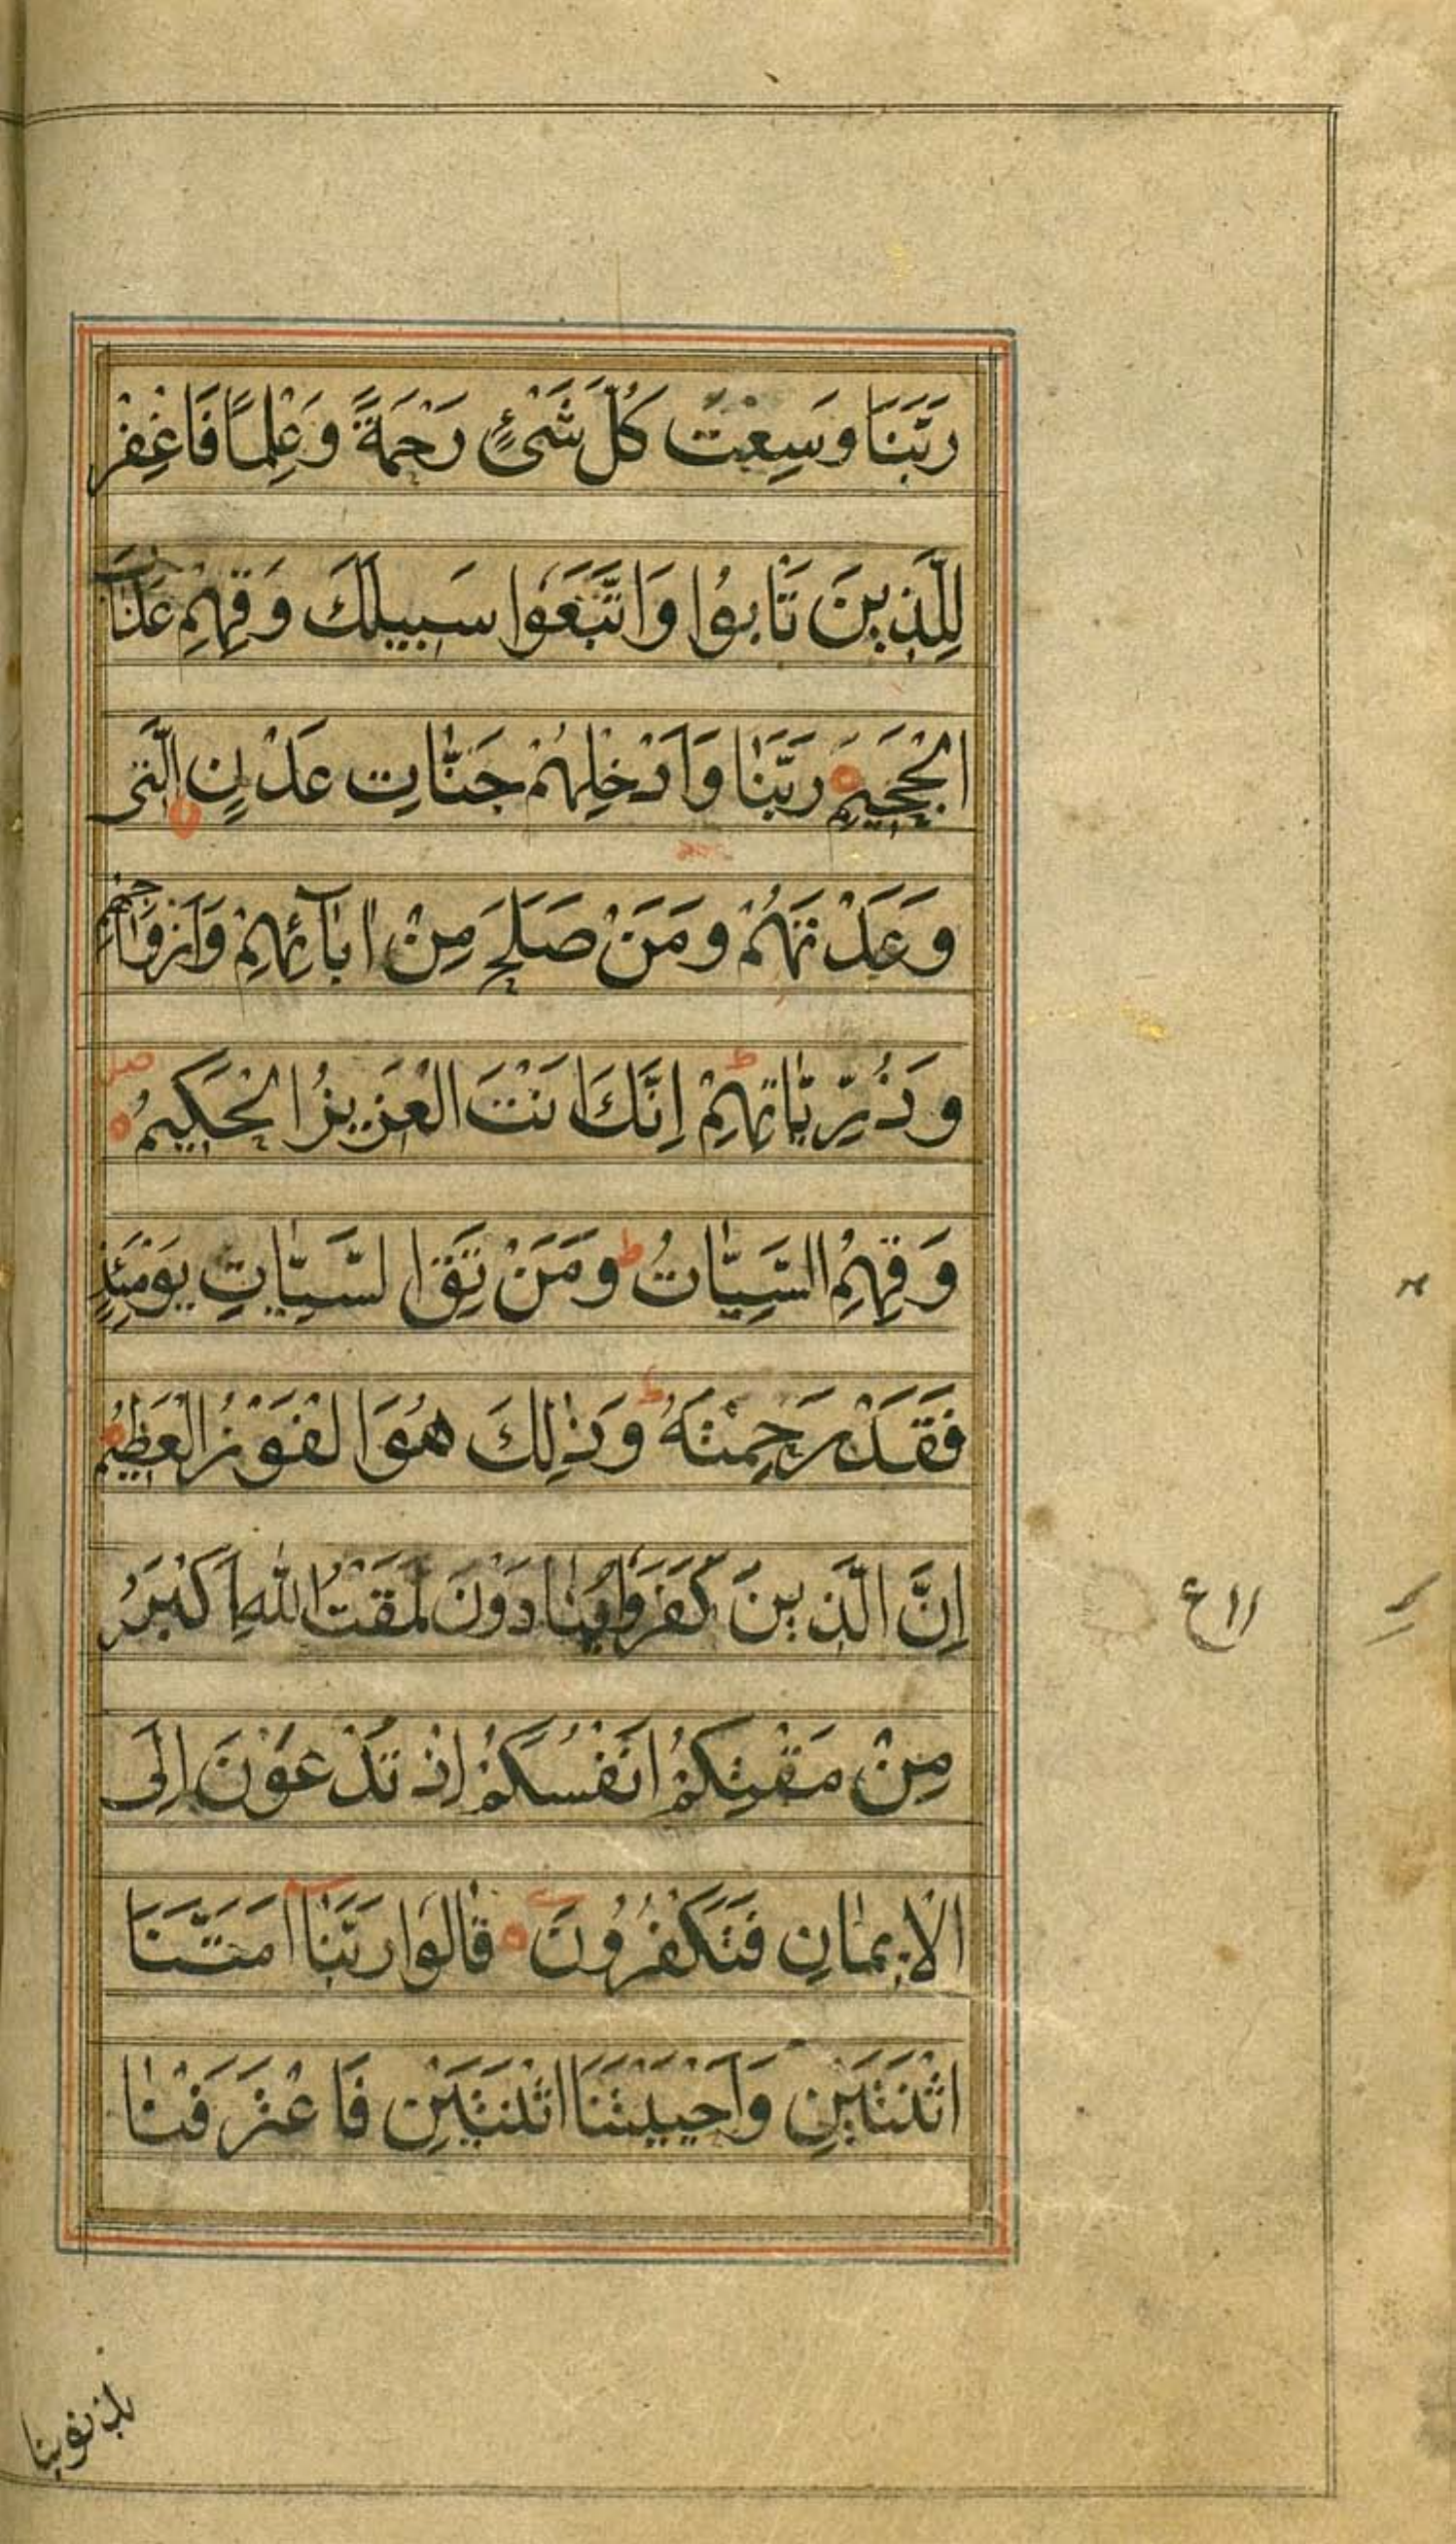 رَبَّنَا وَسِعْتَ كُلَّ شَیْئٍ رَحْمَةً وَعِلْمًا فَاغْفِرْ
لِلَّذِينَ تَابُوا وَاتَّبَعُوا سَبِيلَكَ وَقِهِمْ عَذَابَ
الْجَحِيمِ رَبَّنَا وَاَدْخِلْهُمْ جَنَّاتِ عَدْنٍ الَّتِى
وَعَدْتَهُمْ وَمَنْ صَلَحَ مِنْ اٰبَآئِهِمْ وَاَزْوَاجِهِمْ
وَذُرِّيَّاتِهِمْ ط اِنَّكَ اَنْتَ الْعَزِيزُ الْحَكِيمُ
وَقِهِمُ السَّيِّاٰتُ ط وَمَنْ تَقِ السَّيِّاٰتِ يَوْمَئِذٍ
فَقَدْ رَحِمْتَهُ ط وَذٰلِكَ هُوَ الْفَوْزُ الْعَظِيمُ
اِنَّ الَّذِينَ كَفَرُوا يُنَادَوْنَ لَمَقْتُ اللّٰهِ اَكْبَرُ
مِنْ مَقْتِكُمْ اَنْفُسَكُمْ اِذْ تُدْعَوْنَ اِلَى
الْاِيمَانِ فَتَكْفُرُونَ قَالُوا رَبَّنَا اَمَتَّنَا
اثْنَتَيْنِ وَاَحْيَيْتَنَا اثْنَتَيْنِ فَاعْتَرَفْنَا
بذنوبنا